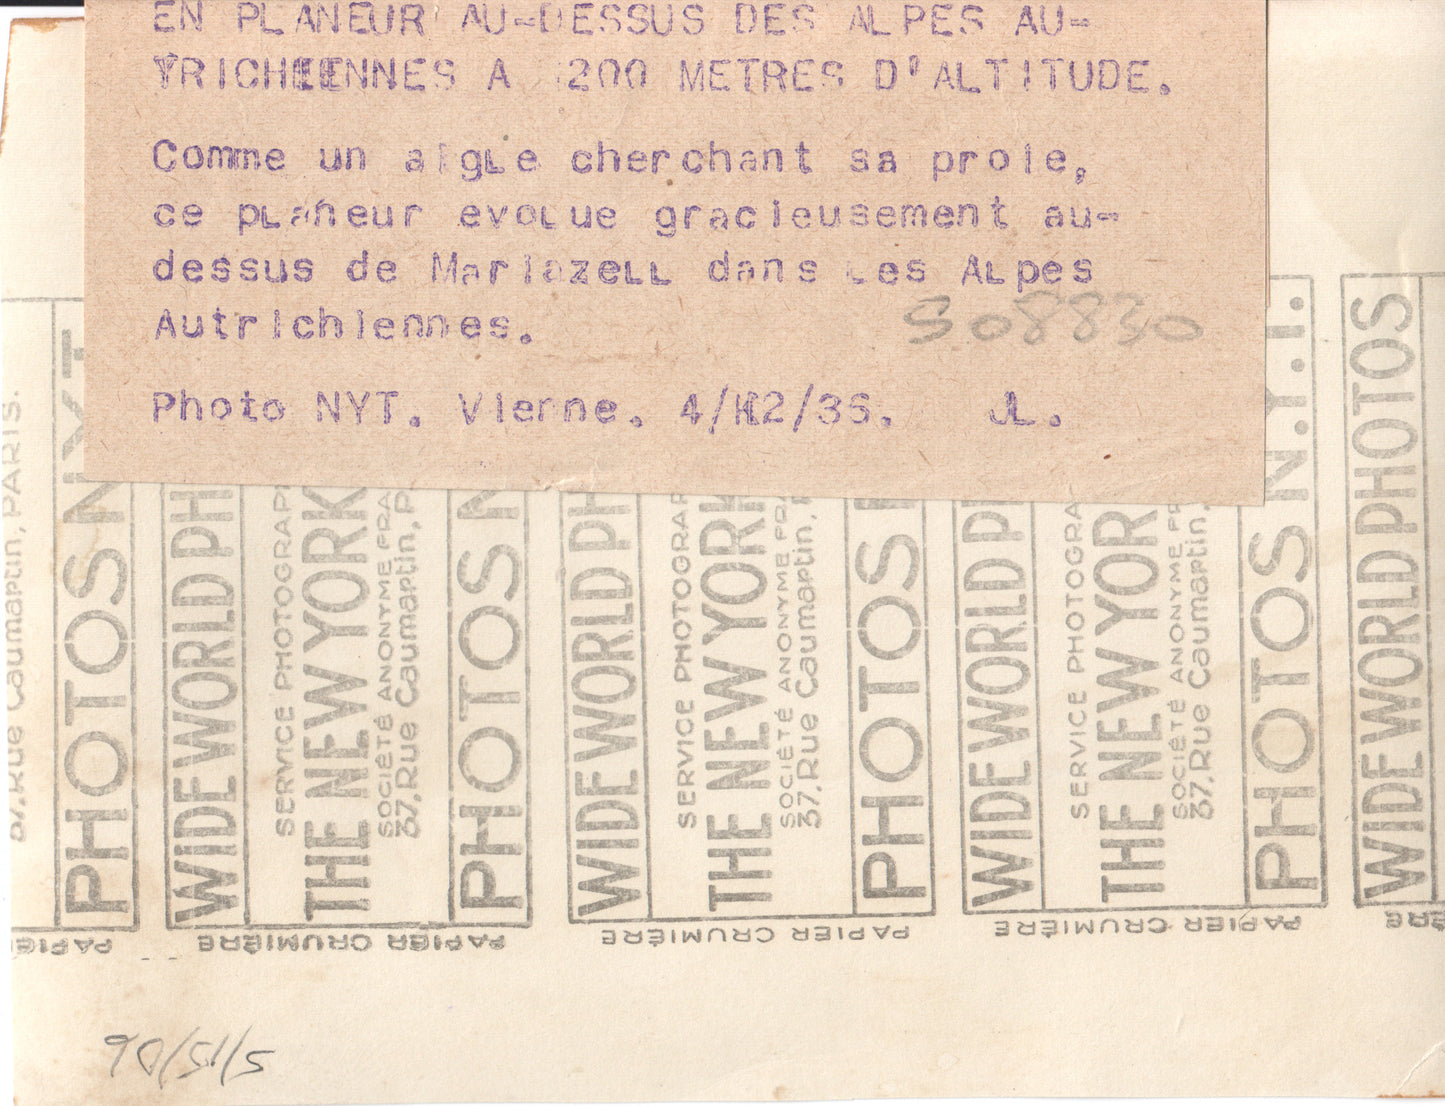 EN PLANEUR AU-DESSUS DES ALPES AU-
YRICHIENNES A 200 METRES D'ALTITUDE.
Comme un aigle cherchant sa proie,
ce planeur evolue gracieusement au-
dessus de Mariazell dans les Alpes
Autrichiennes.
S 08830
Photo NYT. Vienne. 4/12/35. JL.
37, Rue Caumartin, PARIS.
PHOTOS NYT
PAPIER
WIDE WORLD PH
SERVICE PHOTOGRAP
THE NEW YORK
SOCIÉTÉ ANONYME FRA
37, Rue Caumartin, P
PHOTOS N
PAPIER CRUMIÈRE
WIDE WORLD PH
SERVICE PHOTOGRAP
THE NEW YORK
SOCIÉTÉ ANONYME FRA
37, Rue Caumartin,
PHOTOS
PAPIER CRUMIÈRE
WIDE WORLD PH
SERVICE PHOTOGRA
THE NEW YORK
SOCIÉTÉ ANONYME FR
37, Rue Caumartin,
PHOTOS N.Y.T.
PAPIER CRUMIÈRE
WIDE WORLD PHOTOS
90/51/5